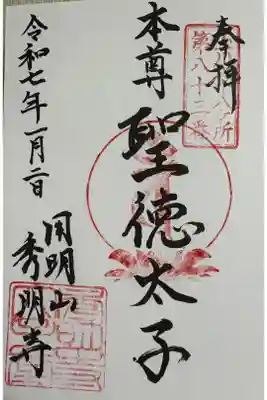 奉拝
第八十三番
本尊
聖徳太子
令和七年一月二日
用明山
秀明寺